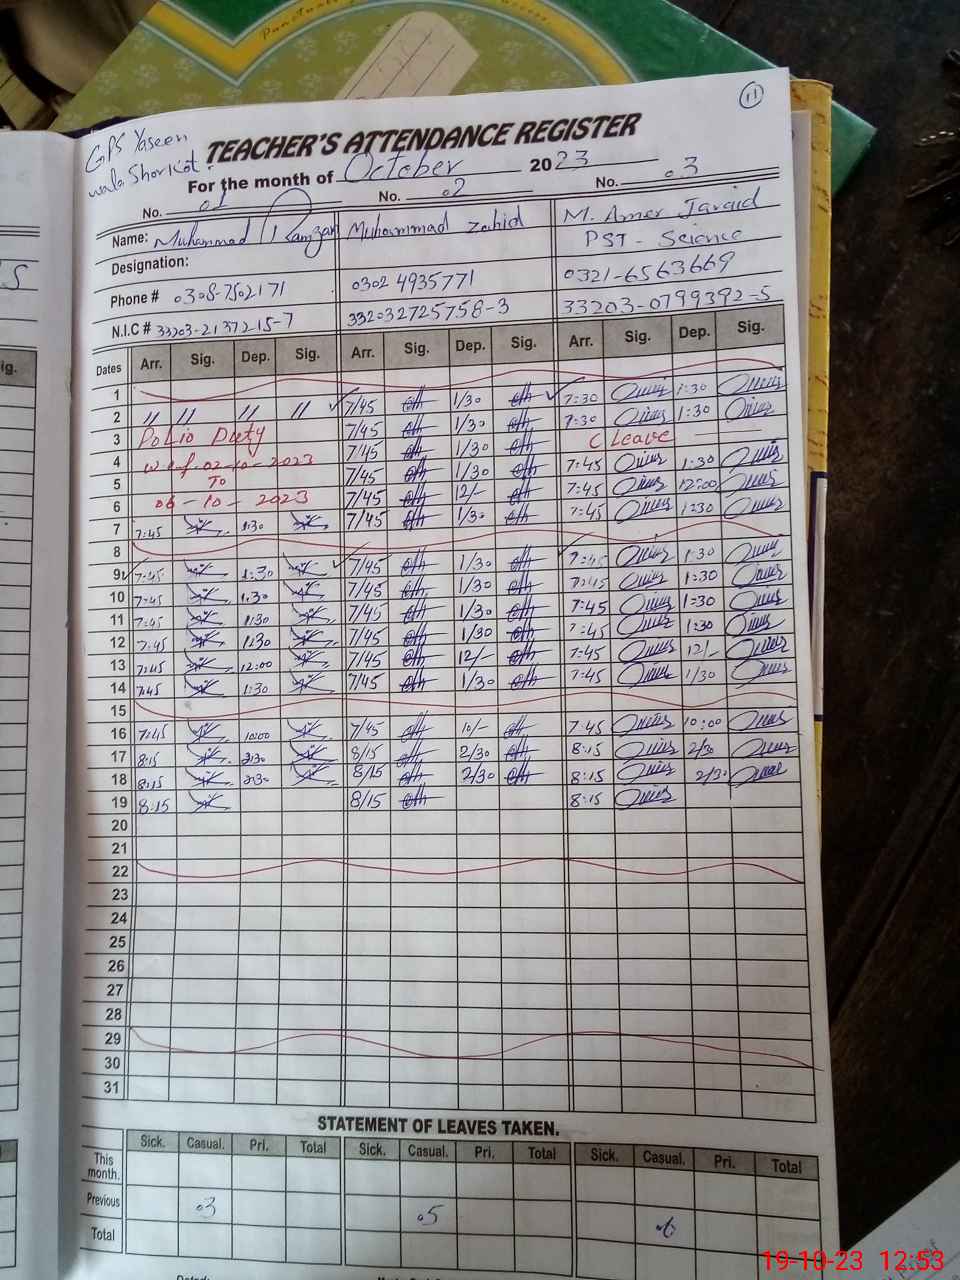 Punctual
GPS Yaseen
wala Shorkot.
11
TEACHER'S ATTENDANCE REGISTER
For the month of October 2023
No. 01 No. 02 No. 03
Name: Muhammad Ramzan Muhammad Zahid M. Amer Javaid
Designation: PST - Science
Phone # 0308-7502171 0302 4935771 0321-6563669
N.I.C # 33203-2137215-7 332032725758-3 33203-0799392-5
Dates Arr. Sig. Dep. Sig. Arr. Sig. Dep. Sig. Arr. Sig. Dep. Sig.
1
2 " " " " 7/45 1/30 7:30 1:30
3 Polio Duty 7/45 1/30 7:30 1:30
4 w.e.f. 02-10-2023 7/45 1/30 C Leave
5 To 7/45 1/30 7:45 1:30
6 06-10-2023 7/45 12/- 7:45 12:00
7 7:45 1:30 7/45 1/30 7:45 1:30
8
9 7:45 1:30 7/45 1/30 7:45 1:30
10 7:45 1:30 7/45 1/30 7:45 1:30
11 7:45 1:30 7/45 1/30 7:45 1:30
12 7:45 1:30 7/45 1/30 7:45 1:30
13 7:45 12:00 7/45 12/- 7:45 12/-
14 7:45 1:30 7/45 1/30 7:45 1/30
15
16 7:45 10:00 7/45 10/- 7:45 10:00
17 8:15 2:30 8/15 2/30 8:15 2/30
18 8:15 2:30 8/15 2/30 8:15 2/30
19 8:15 8/15 8:15
20
21
22
23
24
25
26
27
28
29
30
31
STATEMENT OF LEAVES TAKEN.
Sick. Casual. Pri. Total Sick. Casual. Pri. Total Sick. Casual. Pri. Total
This month.
Previous 03 05 06
Total
19-10-23 12:53